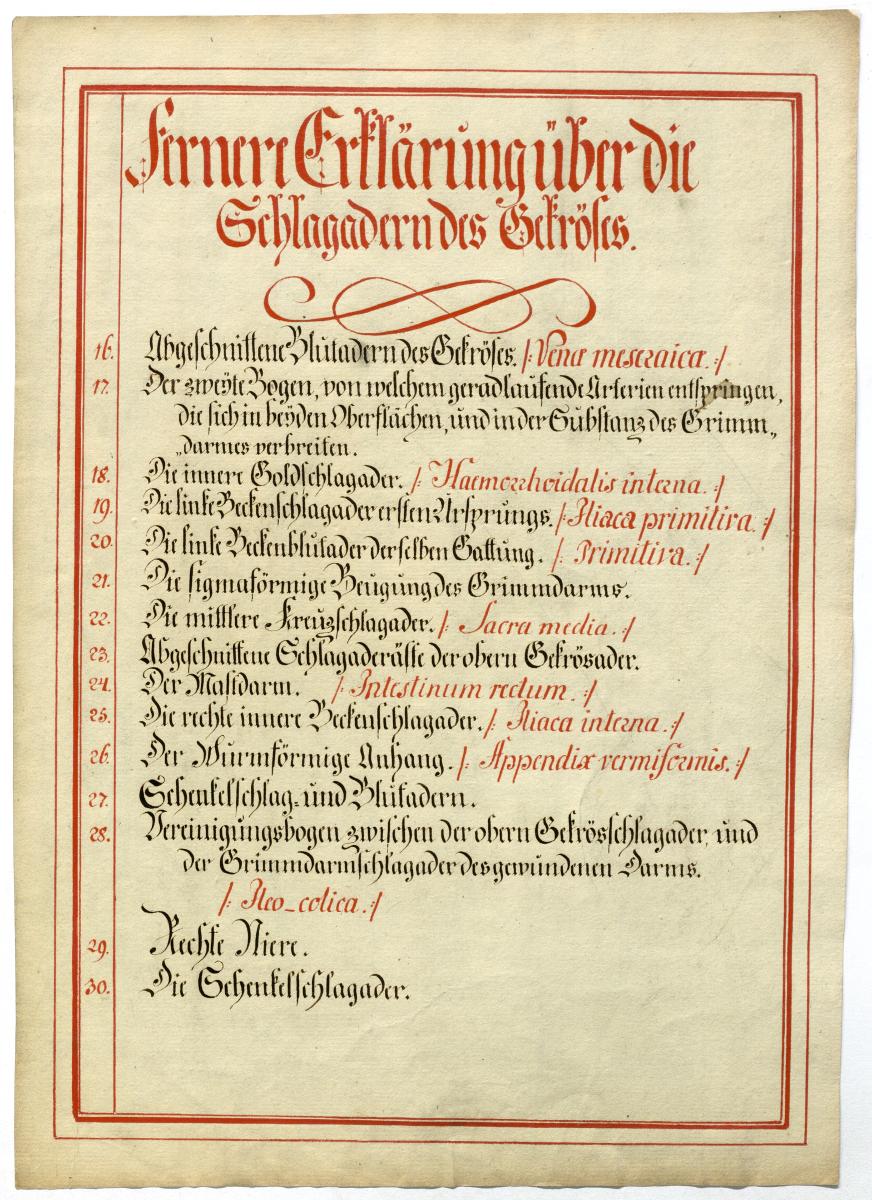 Fernere Erklärung über die
Schlagadern des Gekröses.
16. Abgeschnittene Blutadern des Gekröses. /: Venæ meseraica. :/
17. Der zweÿte Bogen, von welchem geradlaufende Arterien entspringen,
die sich in beÿden Oberflächen, und in der Substanz des Grimm„
„darmes verbreiten.
18. Die innere Goldschlagader. /: Haemorrhoidalis interna. :/
19. Die linke Beckenschlagader ersten Ursprungs. /: Iliaca primitiva. :/
20. Die linke Beckenblutader derselben Gattung. /: Primitiva. :/
21. Die sigmaförmige Beugung des Grimmdarms.
22. Die mittlere Kreuzschlagader. /: Sacra media. :/
23. Abgeschnittene Schlagaderäste der obern Gekrösader.
24. Der Mastdarm. /: Intestinum rectum. :/
25. Die rechte innere Beckenschlagader. /: Iliaca interna. :/
26. Der Wurmförmige Anhang. /: Appendix vermiformis. :/
27. Schenkelschlag= und Blutadern.
28. Vereinigungsbogen zwischen der obern Gekrösschlagader, und
der Grimmdarmschlagader des gewundenen Darms.
/: Ileo_colica. :/
29. Rechte Niere.
30. Die Schenkelschlagader.